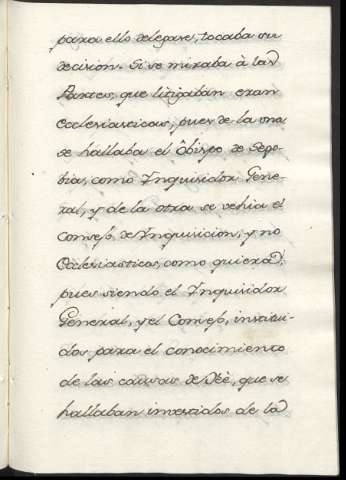 para ello delegase, tocaba su
decision. Si se miraba à las
Partes, que litigaban eran
Ecclesiasticas, pues de la una
se hallaba el Obispo de Sego-
bia, como Ynquisidor Gene-
ral, y de la otra se vehia el
Consejo de Ynquisicion, y no
Ecclesiasticos, como quiera,
pues siendo el Ynquisidor
General, y el Consejo, institui-
dos para el conocimiento
de las causas de Feè, que se
hallaban investidos de la